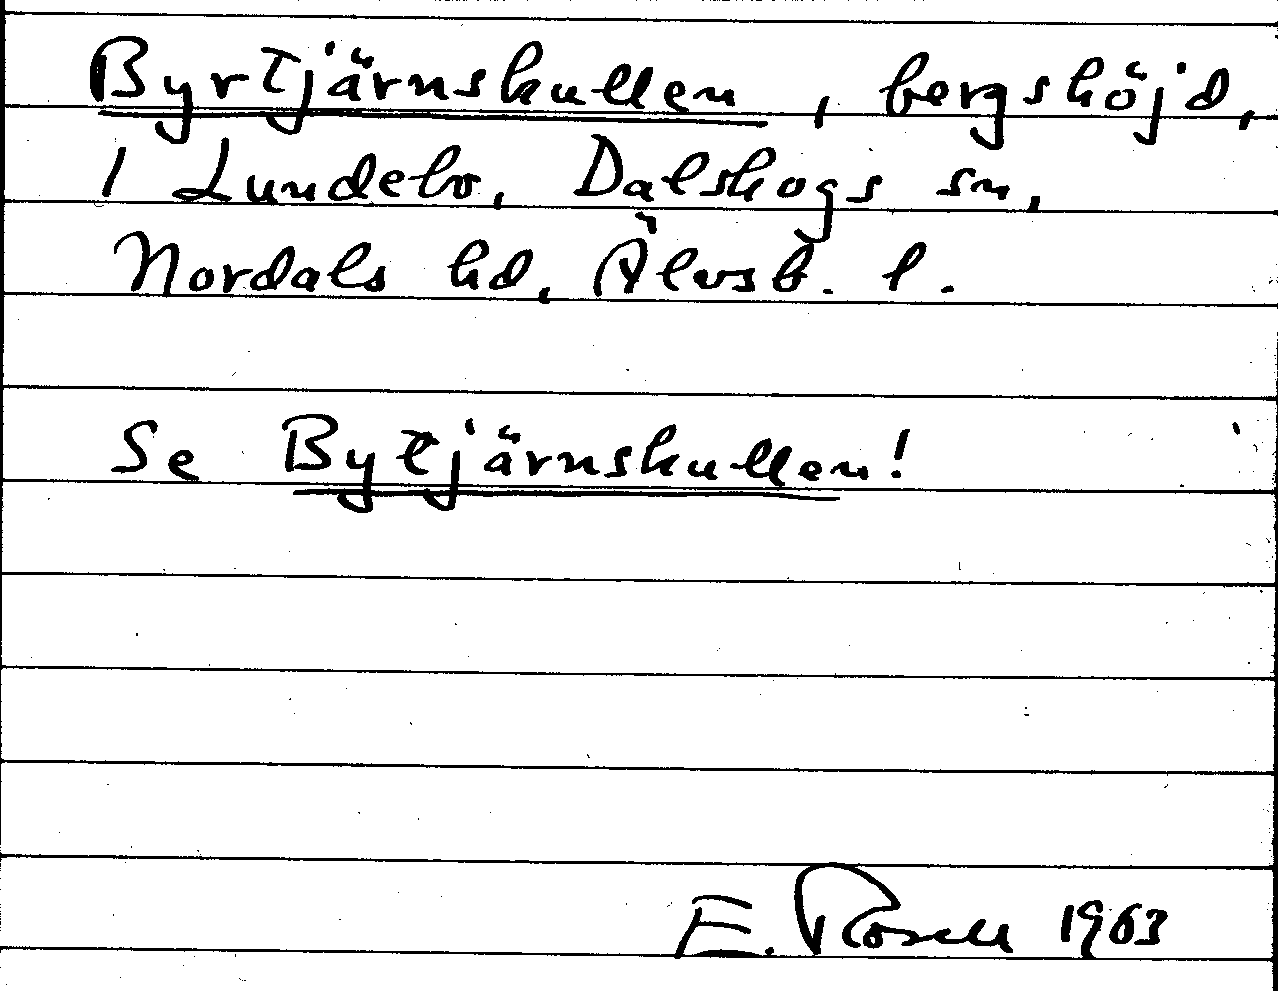 Byrtjärnskullen, bergshöjd,
1 Lundebo, Dalskogs sn,
Nordals hd, Älvsb. l.
Se Bytjärnskullen!
E. Rosell 1963